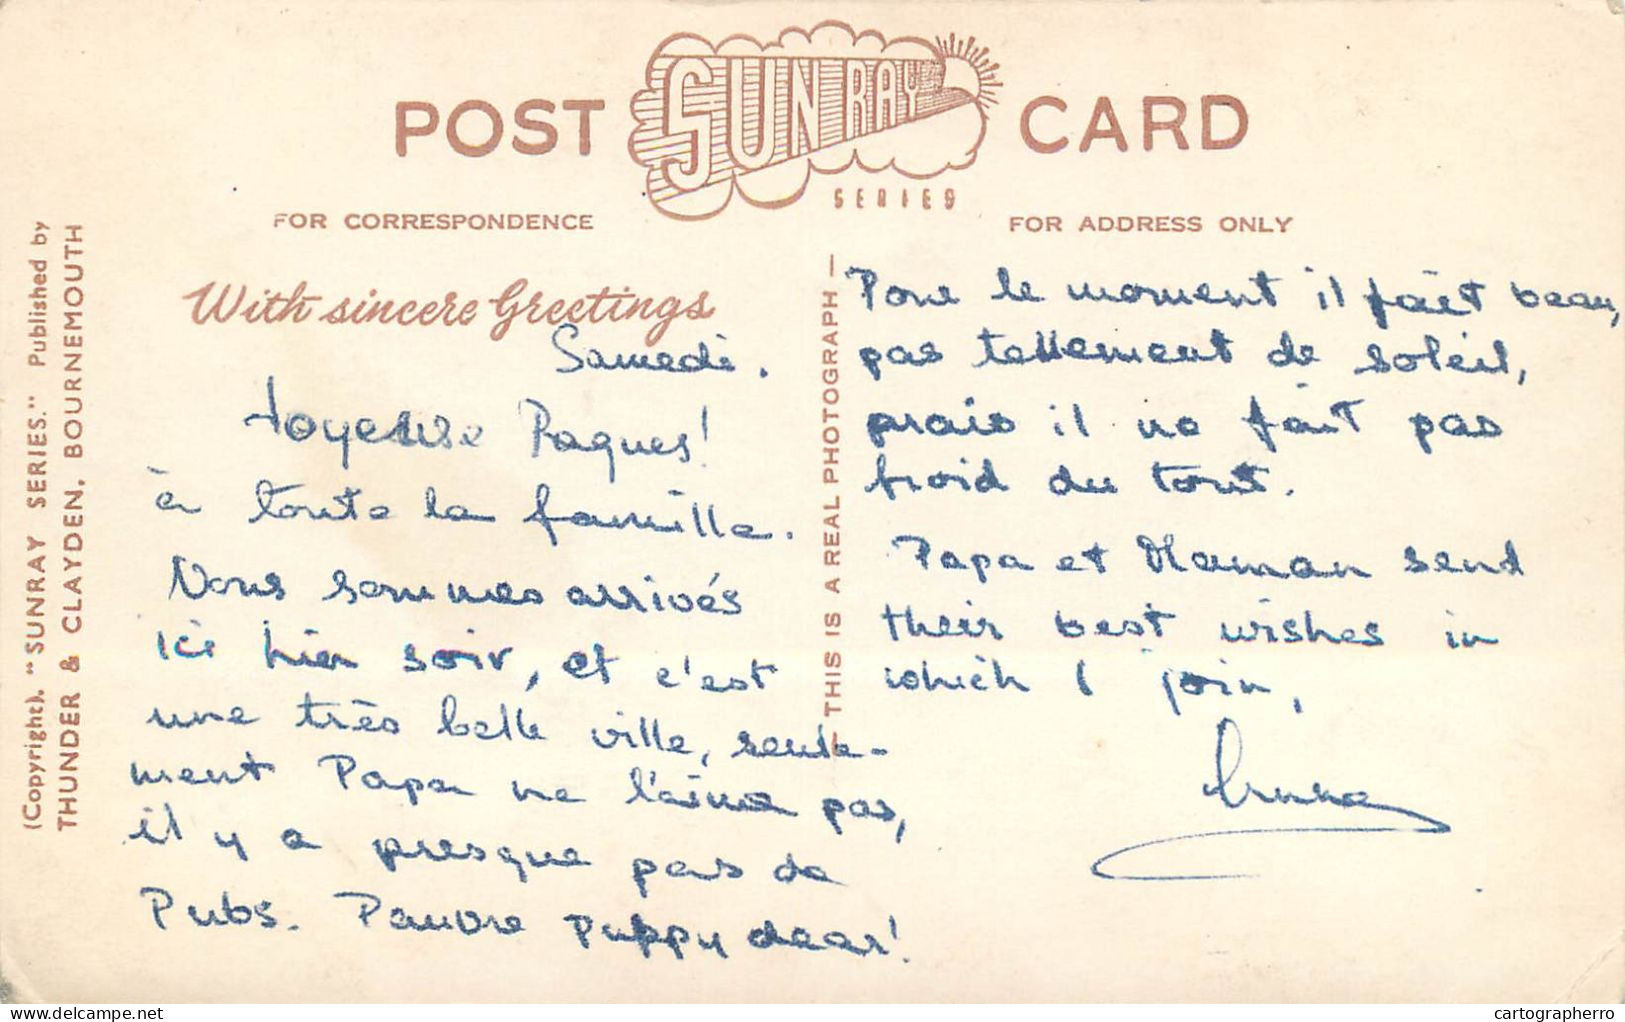 POST SUNRAY SERIES CARD
FOR CORRESPONDENCE
FOR ADDRESS ONLY
(Copyright). "SUNRAY SERIES." Published by
THUNDER & CLAYDEN, BOURNEMOUTH
THIS IS A REAL PHOTOGRAPH —
With sincere Greetings
Samedi.
Joyeuse Paques!
à toute la famille.
Nous sommes arrivés
ici hier soir, et c'est
une très belle ville, seule-
ment Papa ne l'aime pas,
il y a presque pas de
Pubs. Pauvre Puppy dear!
Pour le moment il fait beau,
pas tellement de soleil,
mais il ne fait pas
froid du tout.
Papa et Maman send
their best wishes in
which I join,
delcampe.net
cartographerro